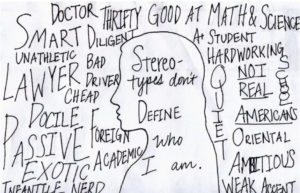 DOCTOR THRIFTY GOOD AT MATH & SCIENCE
SMART DILIGENT
A+ STUDENT
UNATHLETIC BAD DRIVER
HARDWORKING
LAWYER
CHEAP
NOT REAL AMERICANS
DOCILE
QUIET
PASSIVE
FOREIGN
ORIENTAL
EXOTIC
ACADEMIC
AMBITIOUS
INFANTILE NERD
WEAK ACCENT
Stereo-
types don't
DEFINE
Who
I am.